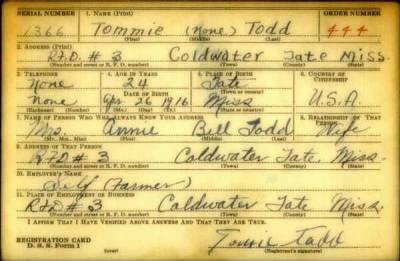 SERIAL NUMBER 1. NAME (Print) ORDER NUMBER
1366 Tommie (None) Todd 444
(First) (Middle) (Last)
2. ADDRESS (Print)
R.F.D. # 3 Coldwater Tate Miss.
(Number and street or R. F. D. number) (Town) (County) (State)
3. TELEPHONE 4. AGE IN YEARS 5. PLACE OF BIRTH 6. COUNTRY OF CITIZENSHIP
None 24 Tate
DATE OF BIRTH (Town or county)
None Apr. 26 1916 Miss U.S.A.
(Exchange) (Number) (Mo.) (Day) (Yr.) (State or country)
7. NAME OF PERSON WHO WILL ALWAYS KNOW YOUR ADDRESS 8. RELATIONSHIP OF THAT PERSON
Mrs. Annie Bell Todd Wife
(Mr., Mrs., Miss) (First) (Middle) (Last)
9. ADDRESS OF THAT PERSON
R.F.D # 3 Coldwater Tate. Miss.
(Number and street or R. F. D. number) (Town) (County) (State)
10. EMPLOYER'S NAME
Self (Farmer)
11. PLACE OF EMPLOYMENT OR BUSINESS
R.F.D # 3 Coldwater Tate Miss.
(Number and street or R. F. D. number) (Town) (County) (State)
I AFFIRM THAT I HAVE VERIFIED ABOVE ANSWERS AND THAT THEY ARE TRUE.
REGISTRATION CARD
D. S. S. FORM 1 Tommie Todd
(Registrant's signature)